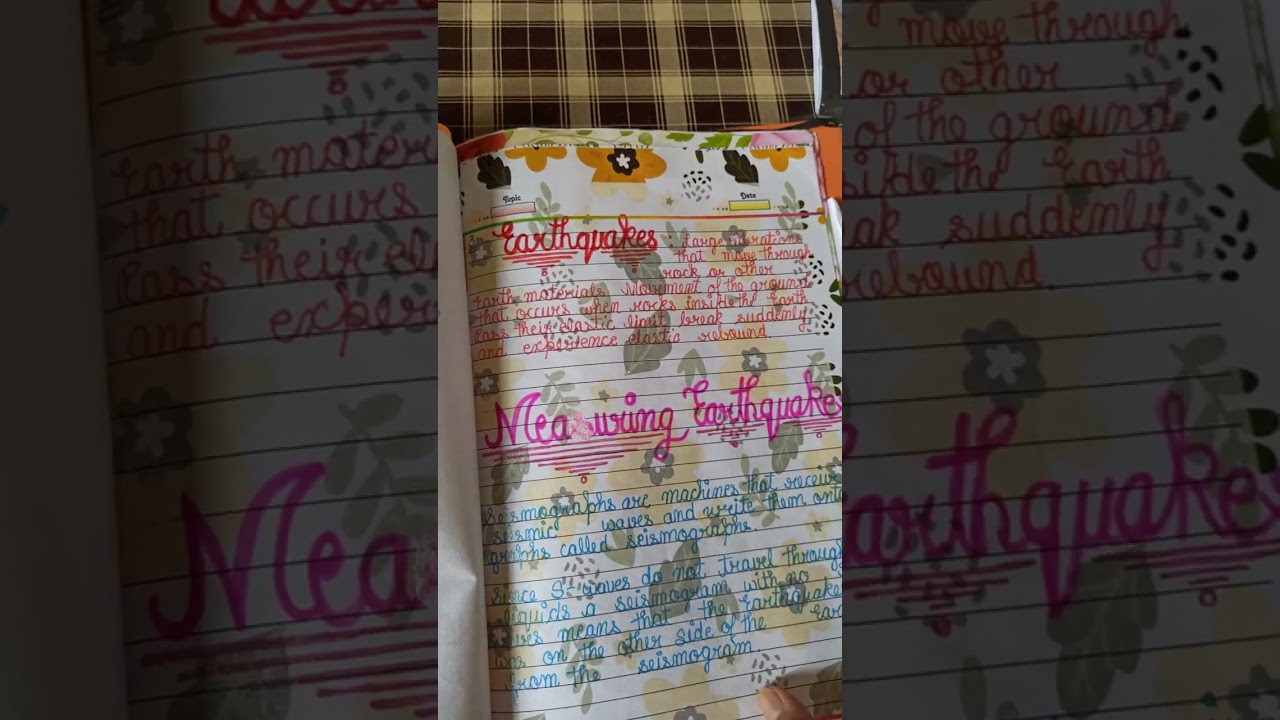 Topic
Date
Earthquakes : Large vibrations
that move through
rock or other
Earth materials. Movement of the ground
that occurs when rocks inside the Earth
Pass their elastic limit break suddenly
and experience elastic rebound.
Measuring Earthquakes
Seismographs are machines that receive
seismic waves and write them onto
graphs called seismographs.
since S waves do not travel through
liquids a seismogram with no
means that the Earthquake
was on the other side of the Ear
from the seismogram